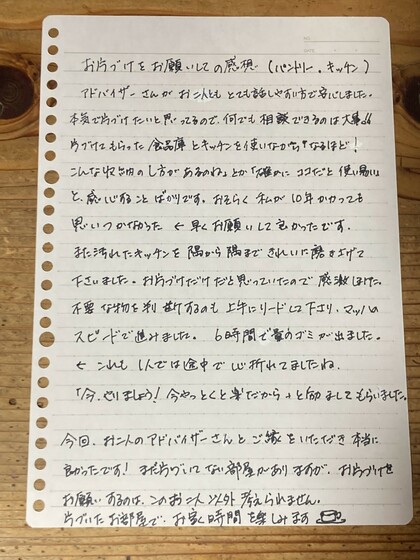 お片づけをお願いしての感想 (パントリー・キッチン)
アドバイザーさんがお二人ともとても話しやすい方で安心しました。
本気で片づけたいと思ってるので、何でも相談できるのは大事!!
片づけてもらった食品庫とキッチンを使いながら"なるほど!
こんな収納の仕方があるのね。とか「確かにココだと使い易い
と、感心することばかりです。おそらく私が10年かかっても
思いつかなかった ← 早くお願いして良かったです。
また汚れたキッチンを隅から隅まできれいに磨き上げて
下さいました。お片づけだけだと思っていたので感激しました。
不要な物を判断するのも上手にリードして下さり、マッハの
スピードで進みました。 6時間で量のゴミが出ました。
← これも1人では途中で心折れてましたね.
「今、やりましょう! 今やっとくと楽だから」と励ましてもらいました。
今回、お二人のアドバイザーさんとご縁をいただき本当に
良かったです! まだ片づいてない部屋がありますが、お片づけを
お願いするのは、このお二人以外考えられません。
片づいたお部屋で、お家時間を楽しみます